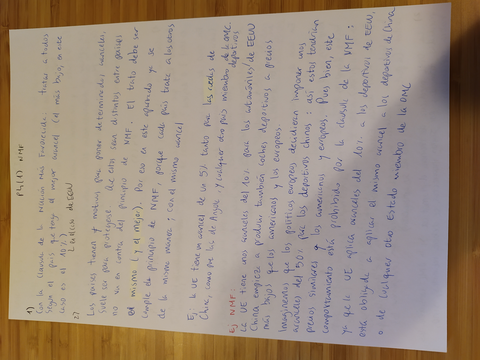 P4 (1) NMF
1)
Con la Cláusula de la Nación más Favorecida tratar a todos
según el país que tenga el mejor arancel (el más bajo, en este
caso es el 10%)
2)
Los países tienen motivos para poner determinados aranceles,
suele ser para protegerse de
no va en contra del principio de NMF. El trato debe ser
el mismo (y el mejor). Por eso en este apartado ya se
cumple el principio de NMF, porque cada país trata a los otros
de la misma manera: con el mismo arancel
Ej, la UE tiene un arancel de un 5% tanto para las de
China, como para los de , y cualquier otro país miembro de la OMC.
Ej NMF:
La UE tiene unos aranceles del 10% para los automóviles deportivos de EEUU
China empieza a producir también coches deportivos a precios
más bajos que los americanos y los europeos.
Imaginemos que los políticos europeos decidieran imponer unos
aranceles del 50% para los deportivos chinos: así estos tendrían
precios similares a los americanos y europeos. Pues bien, este
comportamiento está prohibido por la cláusula de la NMF:
ya que la UE aplica aranceles del 10% a los deportivos de EEUU,
está obligada a aplicar el mismo arancel a los deportivos de China
o de cualquier otro Estado miembro de la OMC